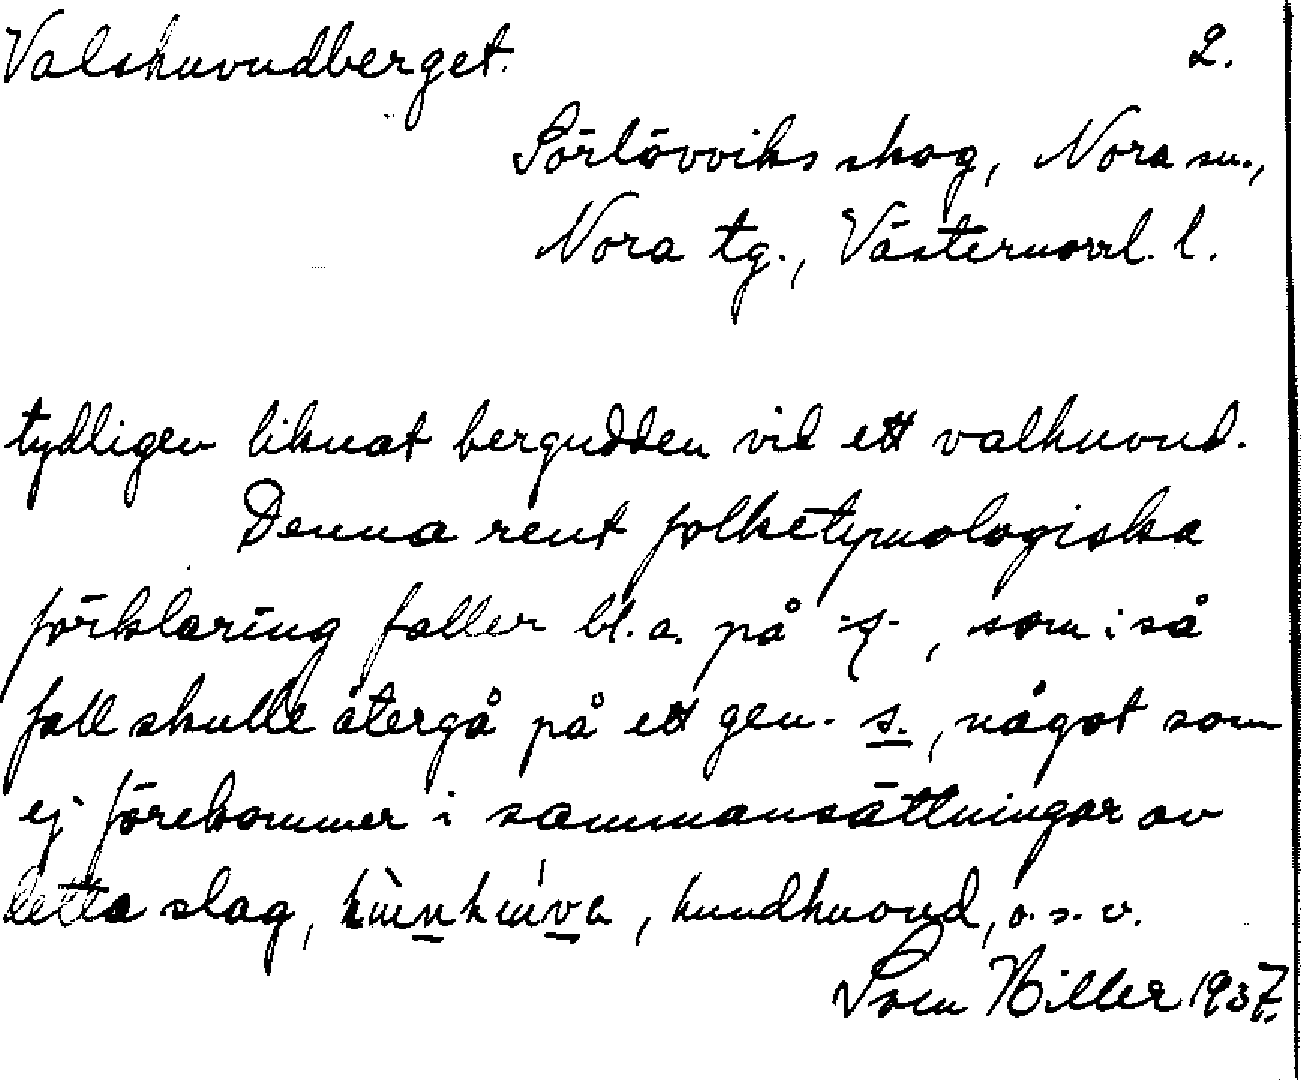 Valshuvudberget.
2.
Sörlövviks skog, Nora sn.,
Nora tg., Västernorrl. l.
tydligen liknat bergudden vid ett valhuvud.
Denna rent folketymologiska
förklaring faller bl. a. på -s-, som i så
fall skulle återgå på ett gen. s., något som
ej förekommer i sammansättningar av
detta slag, hundhuvud, o. s. v.
Sven Hiller 1937.